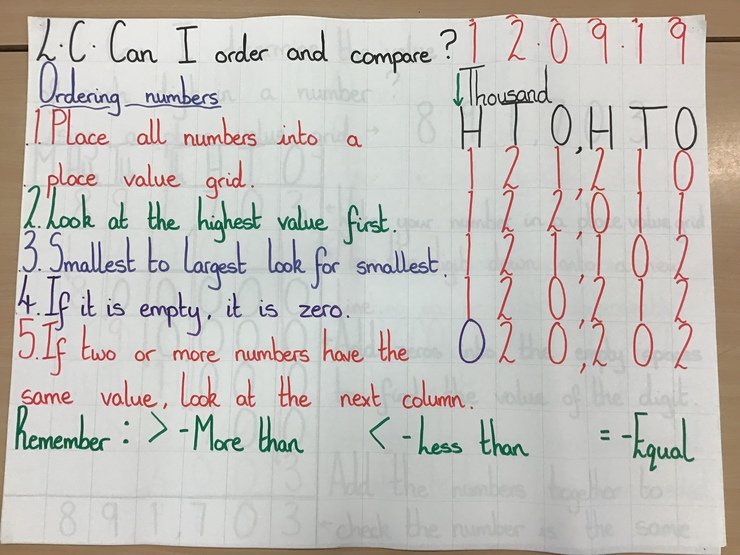 L.C. Can I order and compare? 12.09.19
Ordering numbers
↓Thousand
H T O, H T O
1. Place all numbers into a
1 2 1, 2 1 0
place value grid.
2. Look at the highest value first.
1 2 2, 0 1 1
3. Smallest to largest look for smallest.
1 2 1, 1 0 2
4. If it is empty, it is zero.
1 2 0, 2 1 2
5. If two or more numbers have the
0 2 0, 2 0 2
same value, look at the next column.
Remember: > - More than < - Less than = - Equal
8 9 1, 7 0 3
Add the numbers together to
check the number is the same